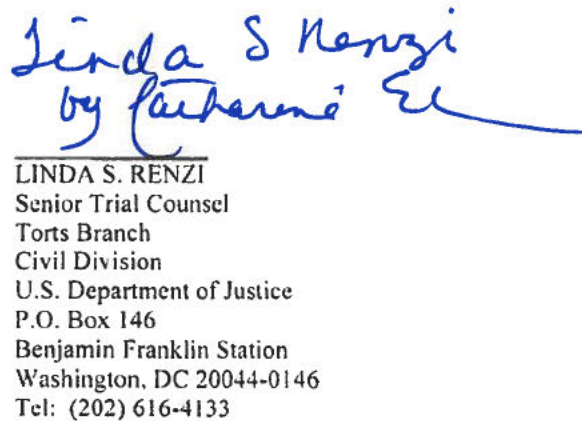 Linda S Renzi
by Catharine E
LINDA S. RENZI
Senior Trial Counsel
Torts Branch
Civil Division
U.S. Department of Justice
P.O. Box 146
Benjamin Franklin Station
Washington, DC 20044-0146
Tel: (202) 616-4133